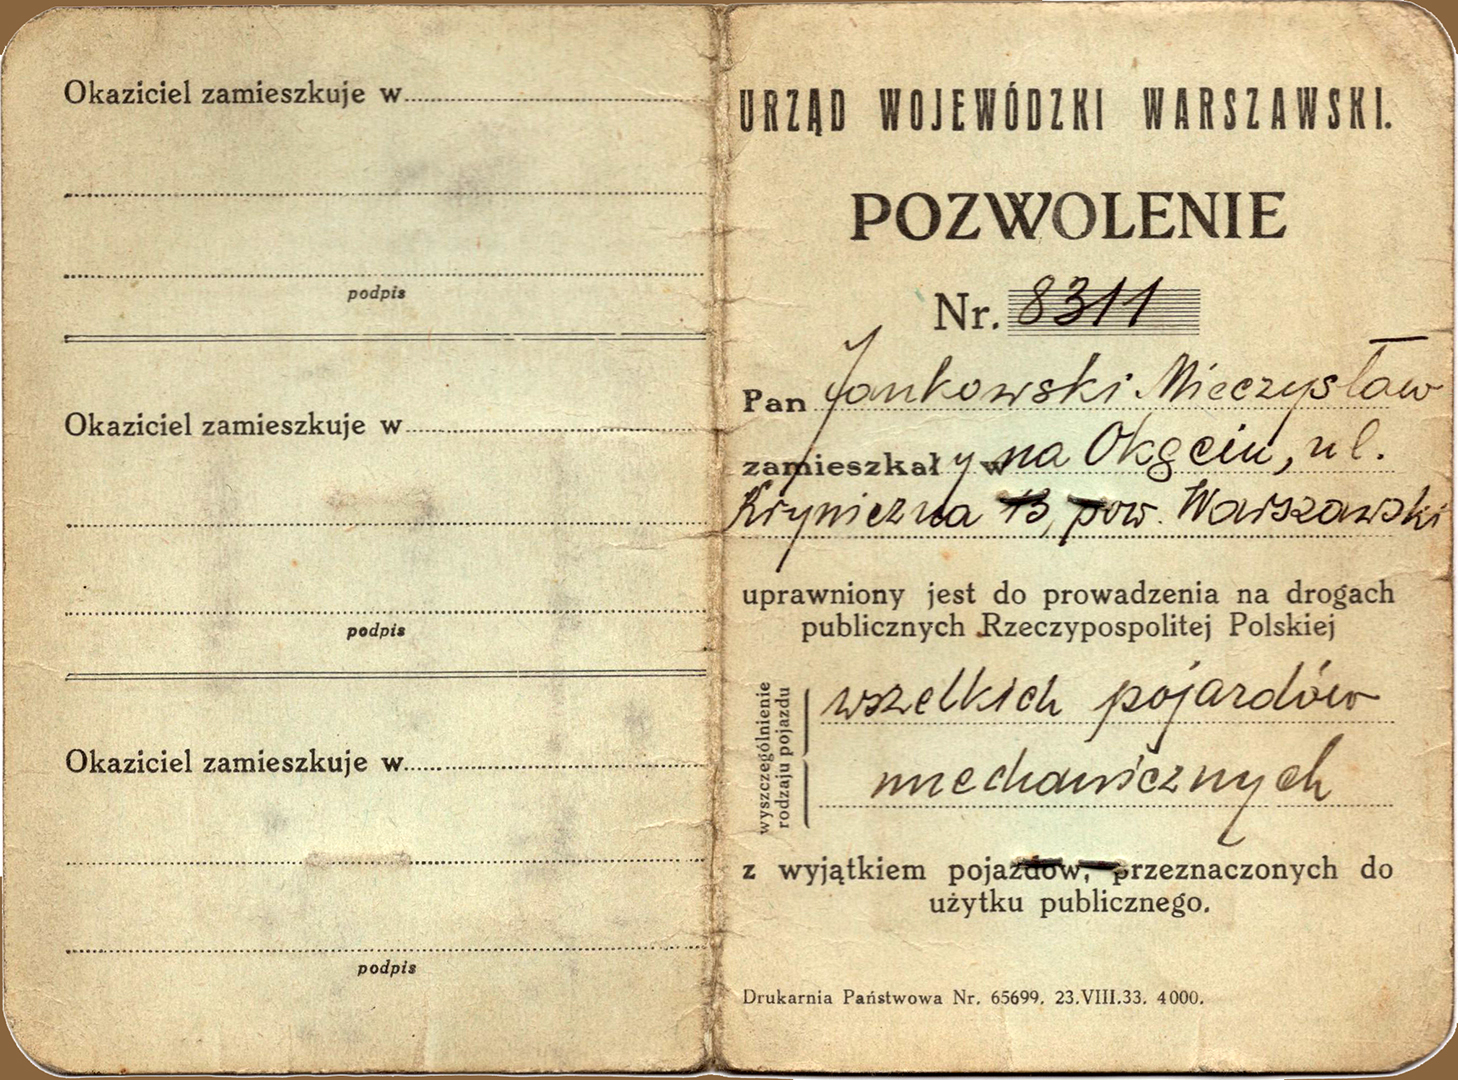 Okaziciel zamieszkuje w
podpis
Okaziciel zamieszkuje w
podpis
Okaziciel zamieszkuje w
podpis
URZĄD WOJEWÓDZKI WARSZAWSKI.
POZWOLENIE
Nr. 8311
Pan Jankowski Mieczysław
zamieszkały w na Okęciu, ul.
Kryniczna 13, pow. Warszawski
uprawniony jest do prowadzenia na drogach
publicznych Rzeczypospolitej Polskiej
wyszczególnienie
rodzaju pojazdu
wszelkich pojazdów
mechanicznych
z wyjątkiem pojazdów, przeznaczonych do
użytku publicznego.
Drukarnia Państwowa Nr. 65699. 23.VIII.33. 4000.